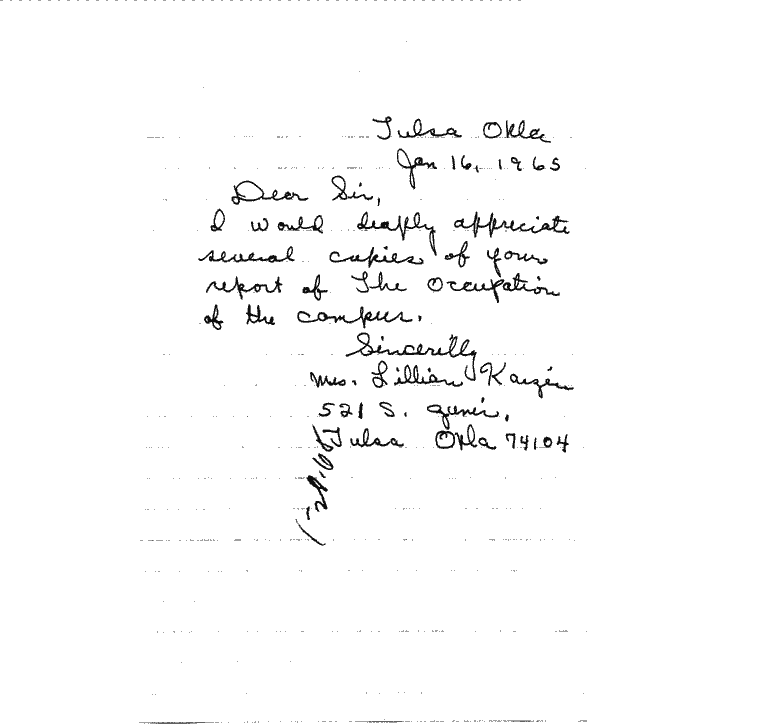 Tulsa Okla
Jan 16, 1965
Dear Sir,
I would deaply appreciate
several cupies of your
report of The Occupation
of the campus.
Sincerilly
Mrs. Lillian
521 S.
Tulsa Okla 74104